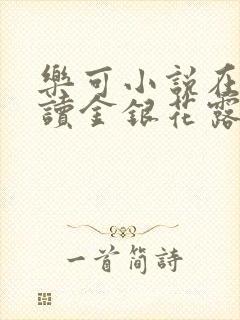 樂可小說在
讀金銀花露
一首簡詩